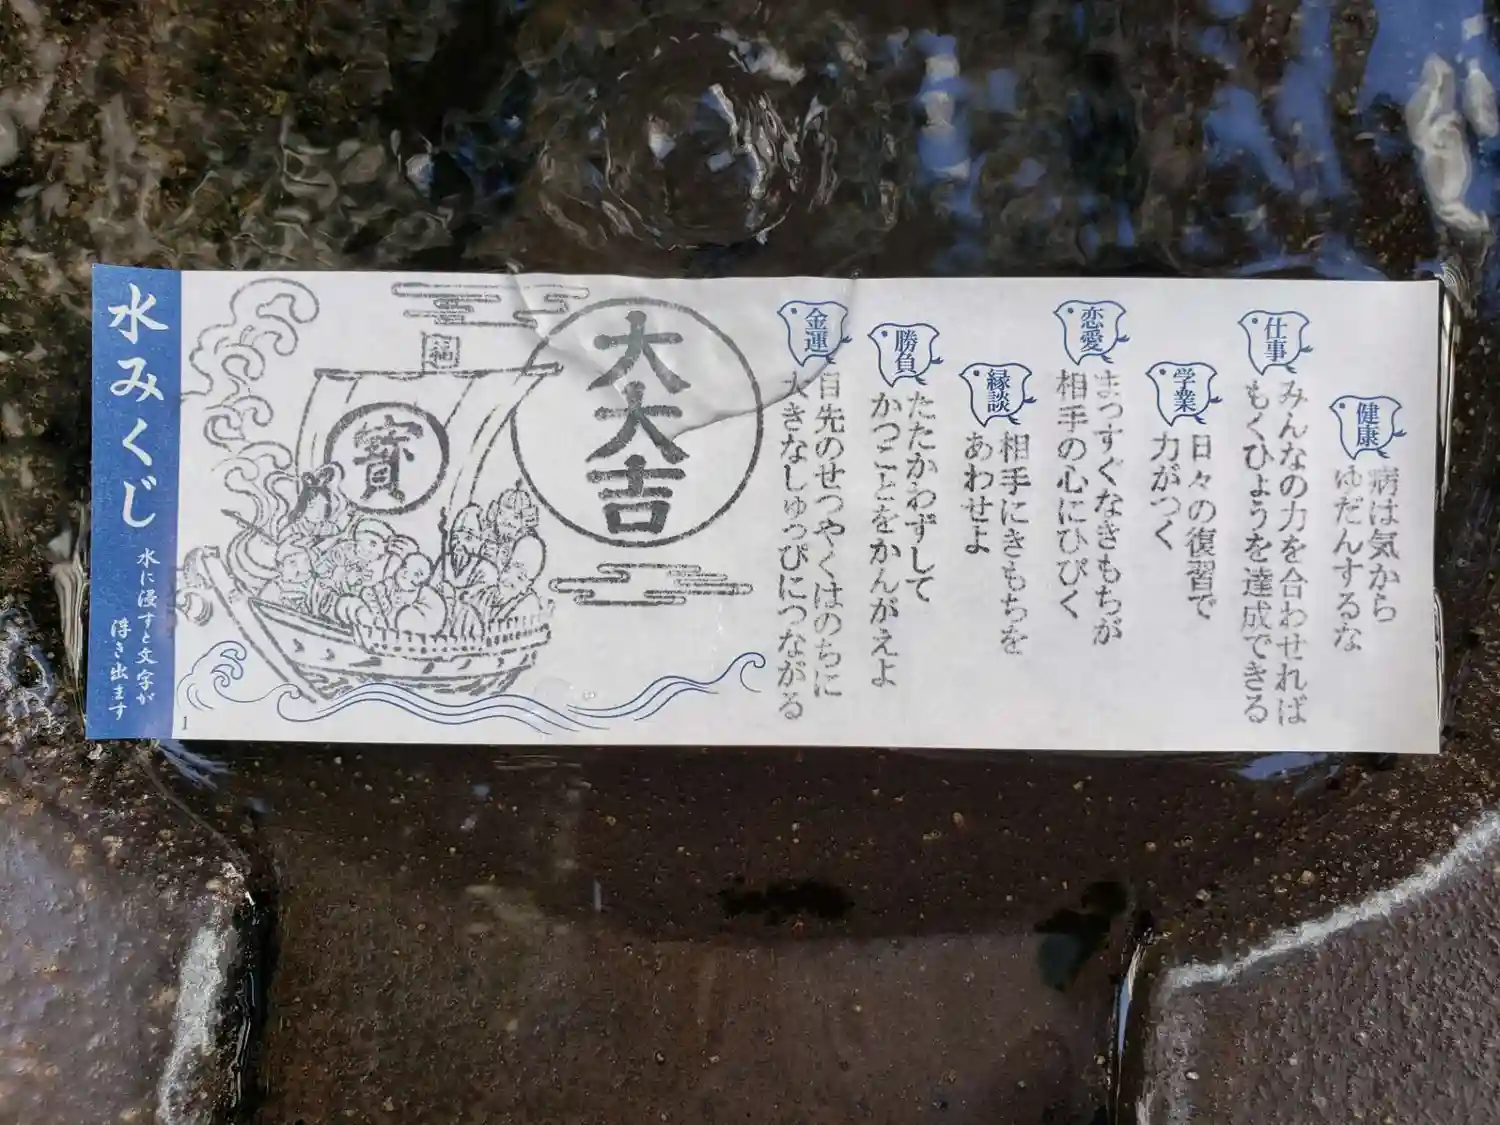 健康
病は気から
ゆだんするな
仕事
みんなの力を合わせれば
もくひょうを達成できる
学業
日々の復習で
力がつく
恋愛
まっすぐなきもちが
相手の心にひびく
縁談
相手にきもちを
あわせよ
勝負
たたかわずして
かつことをかんがえよ
金運
目先のせつやくはのちに
大きなしゅっぴにつながる
大大吉
福
寳
水みくじ
水に浸すと文字が
浮き出ます
1